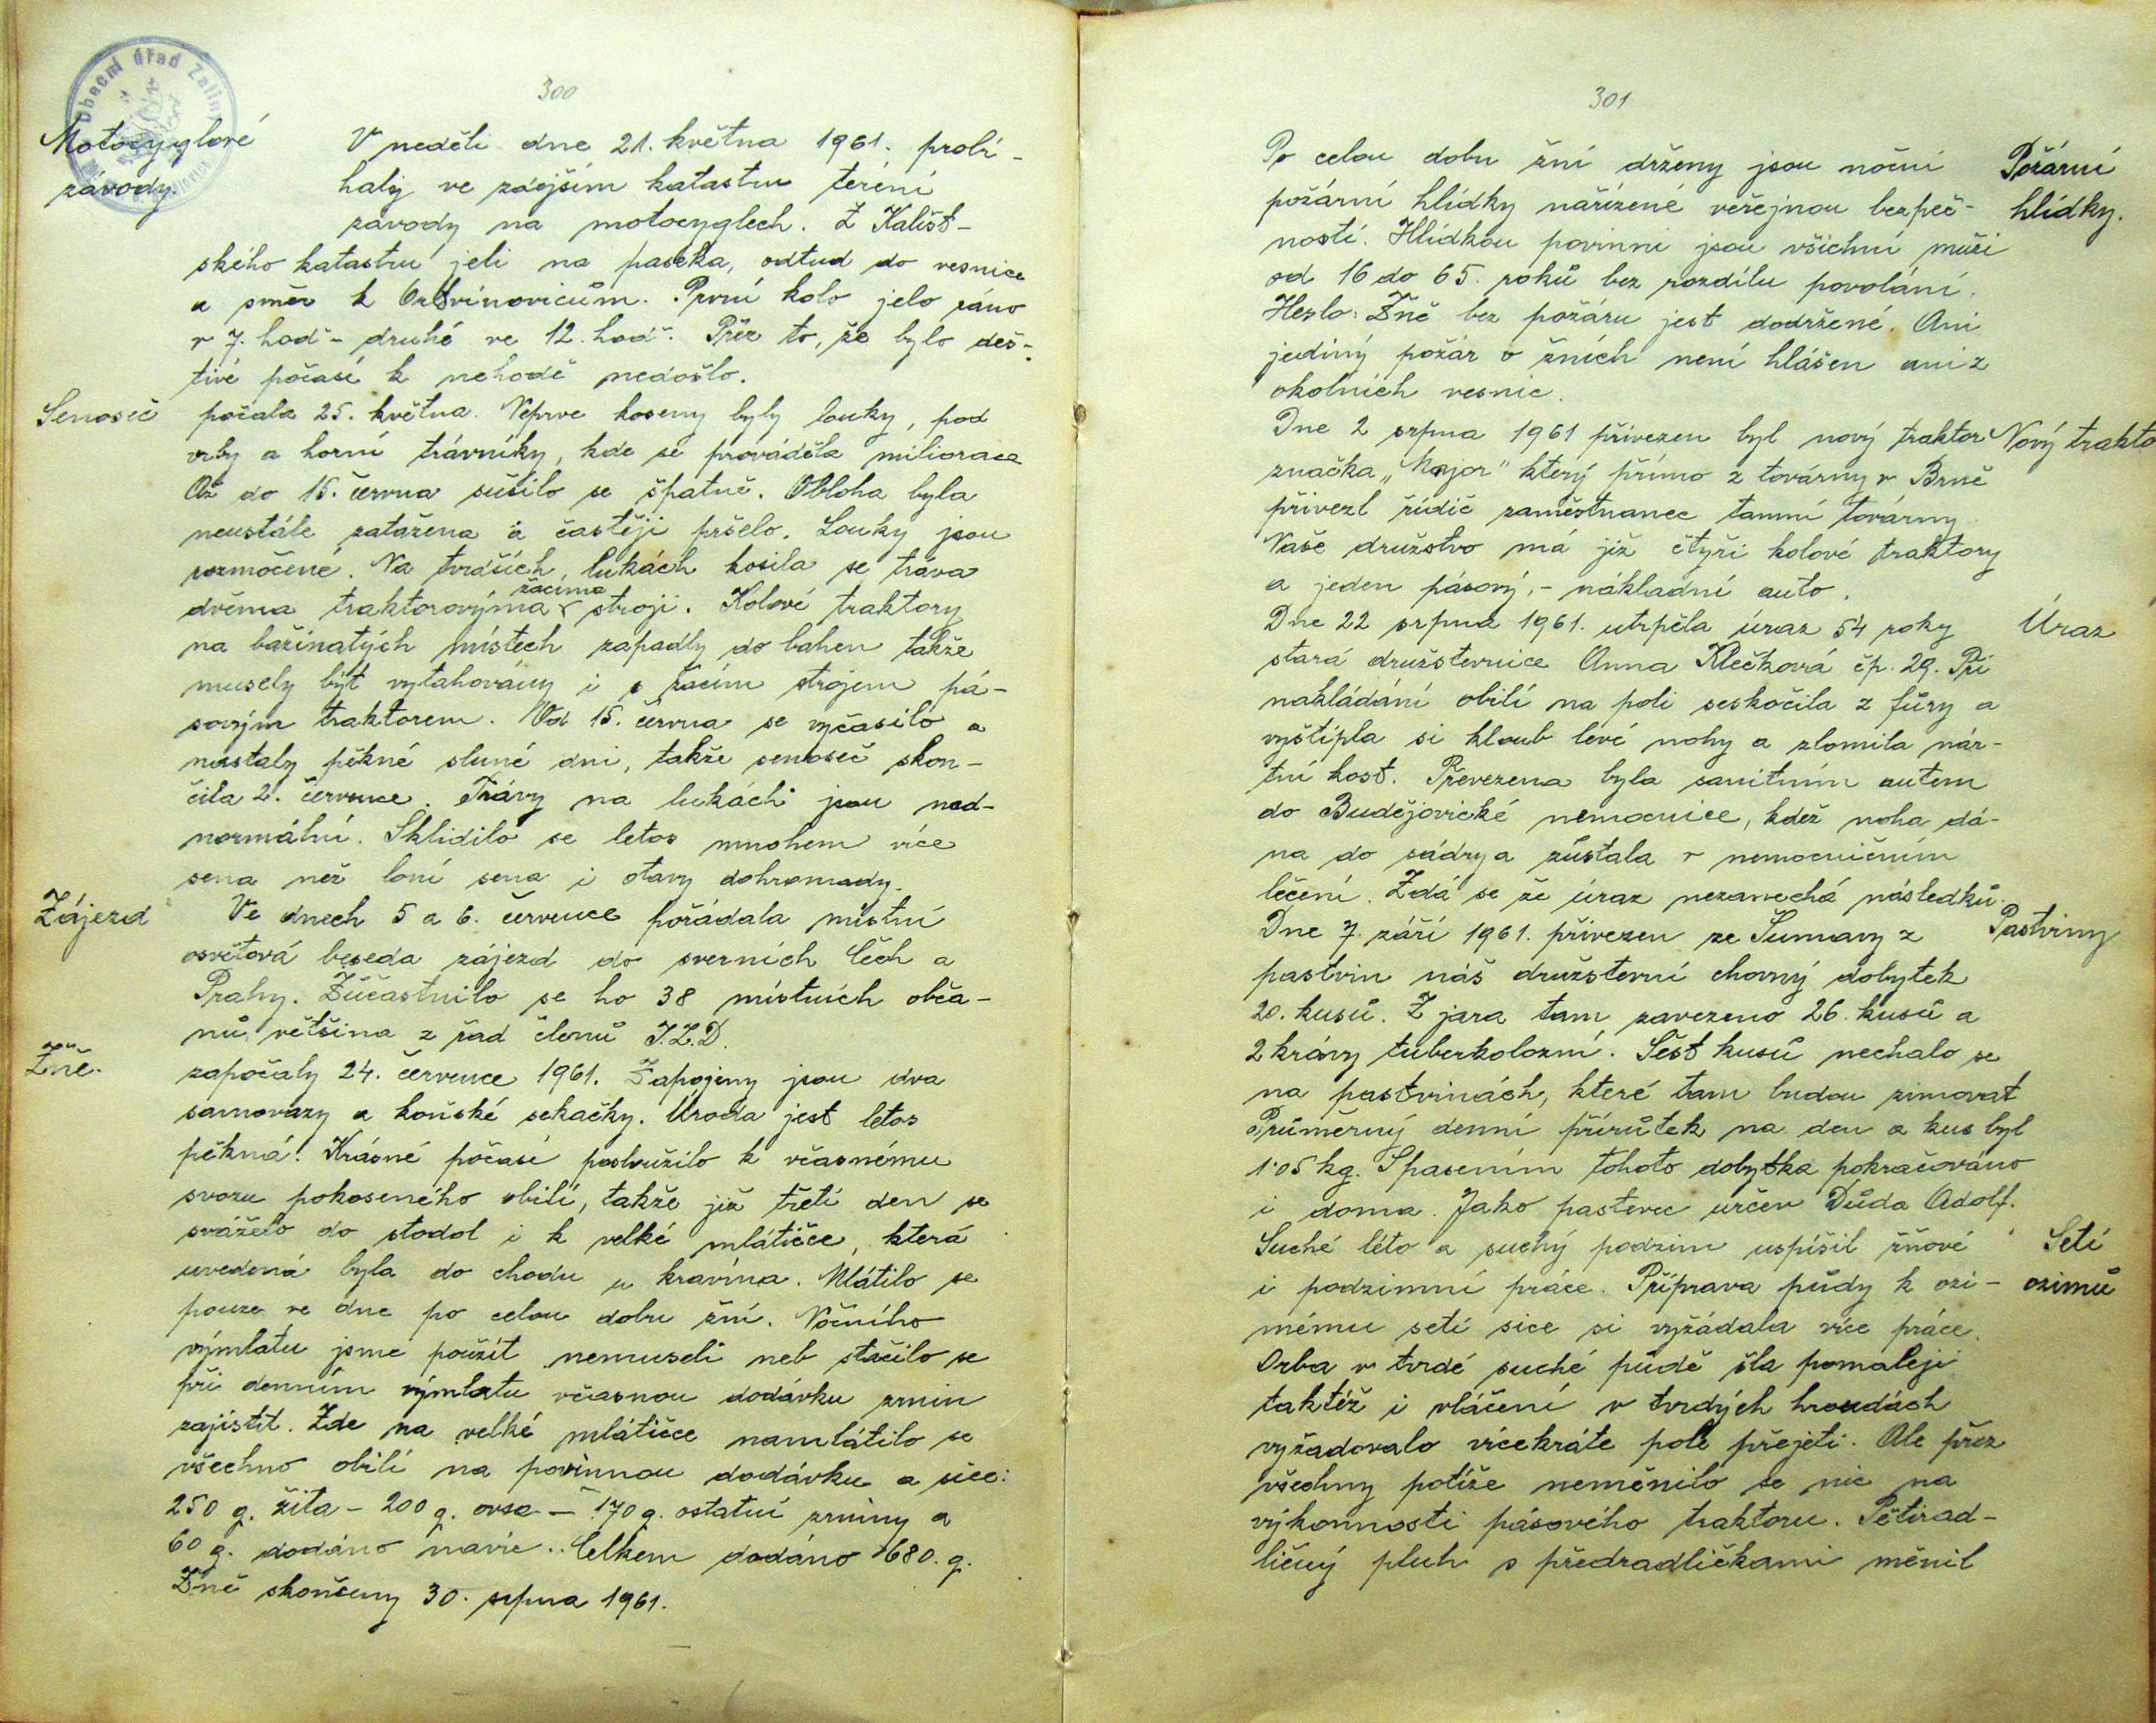 Obecní úřad Zaliny
300
Motocyglové
závody.
V neděli dne 21. května 1961. probí-
haly ve zdejším katastru terení
závody na motocyglech. Z Kališt-
ského katastru jeli na paseka, odtud do vesnice
a směr k Ortvínovicům. První kolo jelo ráno
v 7. hod - druhé ve 12. hod. Přez to, že bylo deš-
tivé počasí k nehodě nedošlo.
Senoseč
počala 25. května. Neprve koseny byly louky, pod
vrby a horní trávníky, kde se prováděla miliorace
Až do 15. června sušilo se špatně. Obloha byla
neustále zatažena a častěji pršelo. Louky jsou
rozmočené. Na tvrdších lukách kosila se tráva
žacíma
dvěma traktorovýma stroji. Kolové traktory
na bažinatých místech zapadly do bahen takže
musely být vytahovány i s žacím strojem pá-
sovým traktorem. Od 15. června se vyčasilo a
nastaly pěkné sluné dni, takže senoseč skon-
čila 2. července. Trávy na lukách jsou nad-
normální. Sklidilo se letos mnohem více
sena než loni sena i otavy dohromady.
Zájezd
Ve dnech 5 a 6. července pořádala místní
osvětová beseda zájezd do severních Čech a
Prahy. Zúčastnilo se ho 38 místních obča-
nů většina z řad členů J.Z.D.
Žně.
započaly 24. července 1961. Zapojeny jsou dva
samovazy a koňské sekačky. Úroda jest letos
pěkná. Krásné počasí posloužilo k včasnému
svozu pokoseného obilí, takže již třetí den se
sváželo do stodol i k velké mlátičce, která
uvedená byla do chodu u kravína. Mlátilo se
pouze ve dne po celou dobu žní. Nočního
výmlatu jsme použít nemuseli neb stačilo se
při denním výmlatu včasnou dodávku zrnin
zajistit. Zde na velké mlátičce namlátilo se
všechno obilí na povinnou dodávku a sice:
250 q. žita - 200 q. ovsa - 170 q. ostatní zrniny a
60 q. dodáno navíc. Celkem dodáno 680. q.
Žně skončeny 30. srpna 1961.
301
Po celou dobu žní drženy jsou noční
požární hlídky nařízené veřejnou bezpeč-
ností. Hlídkou povinni jsou všichni muži
od 16 do 65. roků bez rozdílu povolání.
Heslo: Žně bez požáru jest dodržené. Ani
jediný požár o žních není hlášen ani z
okolních vesnic.
Požární
hlídky.
Dne 2 srpna 1961 přivezen byl nový traktor
značka „Major" který přímo z továrny v Brně
přivezl řidič zaměstnanec tamní továrny
Naše družstvo má již čtyři kolové traktory
a jeden pásový, - nákladní auto.
Nový trakto
Dne 22 srpna 1961. utrpěla úraz 54 roky
stará družstevnice Anna Klečková čp. 29. Při
nakládání obilí na poli seskočila z fůry a
vyštípla si kloub levé nohy a zlomila nár-
tní kost. Převezena byla sanitním autem
do Budějovické nemocnice, kdež noha dá-
na do sádry a zůstala v nemocničním
léčení. Zdá se že úraz nezanechá následků.
Úraz
Dne 7 září 1961. přivezen ze Šumavy z
pastvin náš družstevní chovný dobytek
20. kusů. Z jara tam zavezeno 26. kusů a
2 krávy tuberkolozní. Šest kusů nechalo se
na pastvinách, které tam budou zimovat
Průměrný denní přírůtek na den a kus byl
1·05 kg. Spasením tohoto dobytka pokračováno
i doma. Jako pastevec určen Důda Adolf.
Pastviny
Suché léto a suchý podzim uspíšil žňové
i podzimní práce. Příprava půdy k ozi-
mému setí sice si vyžádala více práce.
Orba v tvrdé suché půdě šla pomaleji
taktéž i vláčení v tvrdých hroudách
vyžadovalo vícekráte pole přejeti. Ale přez
všechny potíže neměnilo se nic na
výkonnosti pásového traktoru. Pětirad-
ličný pluh s předradličkami měnil
Setí
ozimů